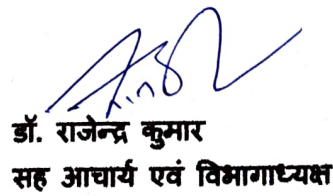 डॉ. राजेन्द्र कुमार
सह आचार्य एवं विभागाध्यक्ष